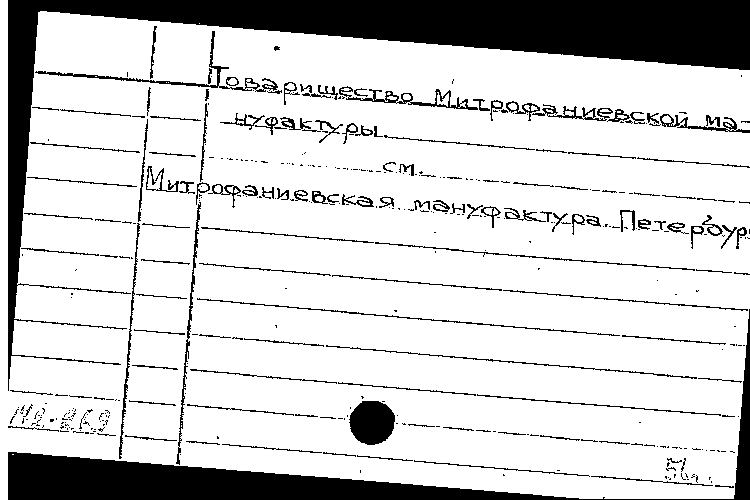 Товарищество Митрофаниевской ма-
нуфактуры.
см.
Митрофаниевская мануфактура. Петербург
М2-269